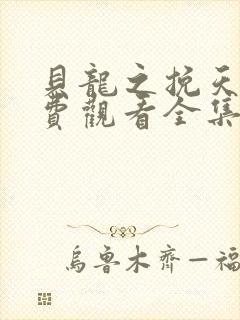 見龍之挽天
費觀看全集
烏魯木齊—福